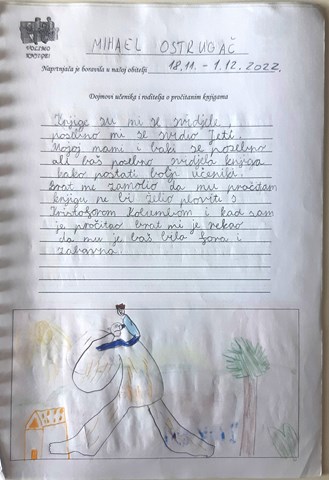 VOLIMO
KNJIGU!
MIHAEL OSTRUGAČ
Naprtnjača je boravila u našoj obitelji 18.11. - 1.12.2022.
Dojmovi učenika i roditelja o pročitanim knjigama
Knjige su mi se svidjele
posebno mi se svidio Jeti.
Mojoj mami i baki se posebno
ali baš posebno svidjela knjiga
kako postati bolji učenik.
Brat me zamolio da mu pročitam
knjigu ne bi želio ploviti s
Kristoforom Kolumbom i kad sam
je pročitao brat mi je rekao
da mu je baš bila fora i
zabavna.